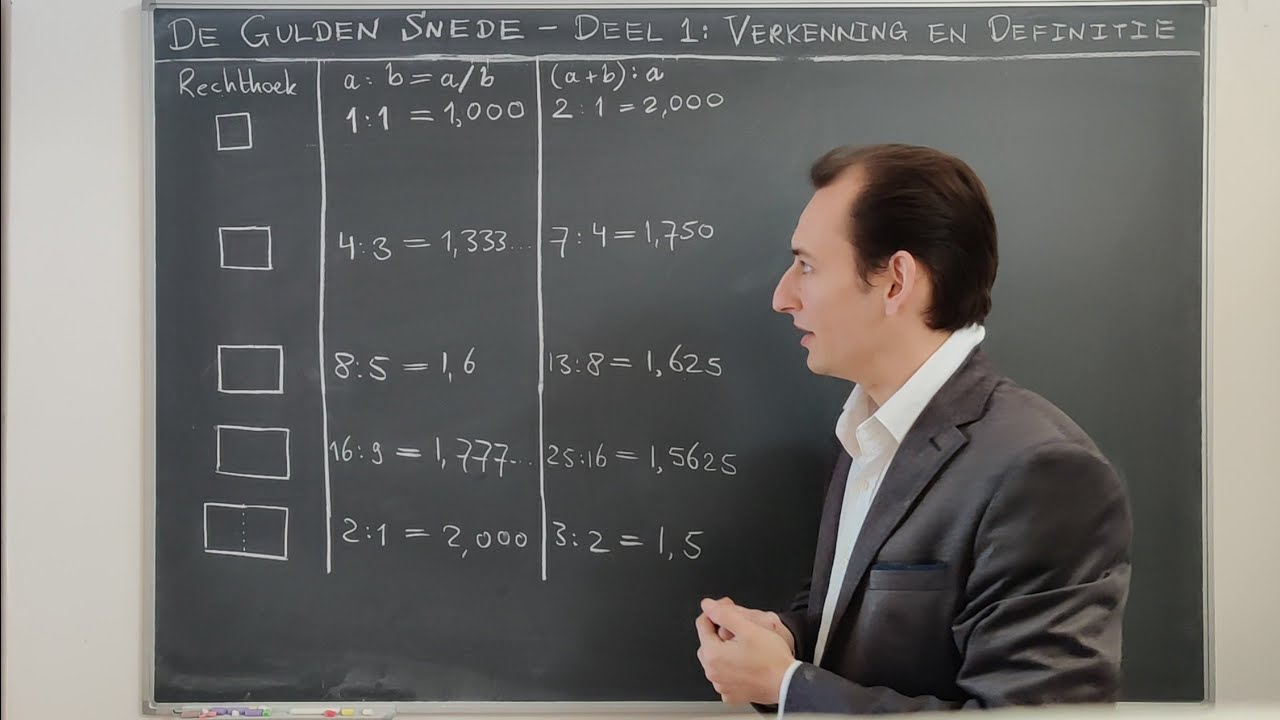 DE GULDEN SNEDE – DEEL 1: VERKENNING EN DEFINITIE
Rechthoek a : b = a/b (a+b) : a
1:1 = 1,000 2:1 = 2,000
4:3 = 1,333... 7:4 = 1,750
8:5 = 1,6 13:8 = 1,625
16:9 = 1,777... 25:16 = 1,5625
2:1 = 2,000 3:2 = 1,5